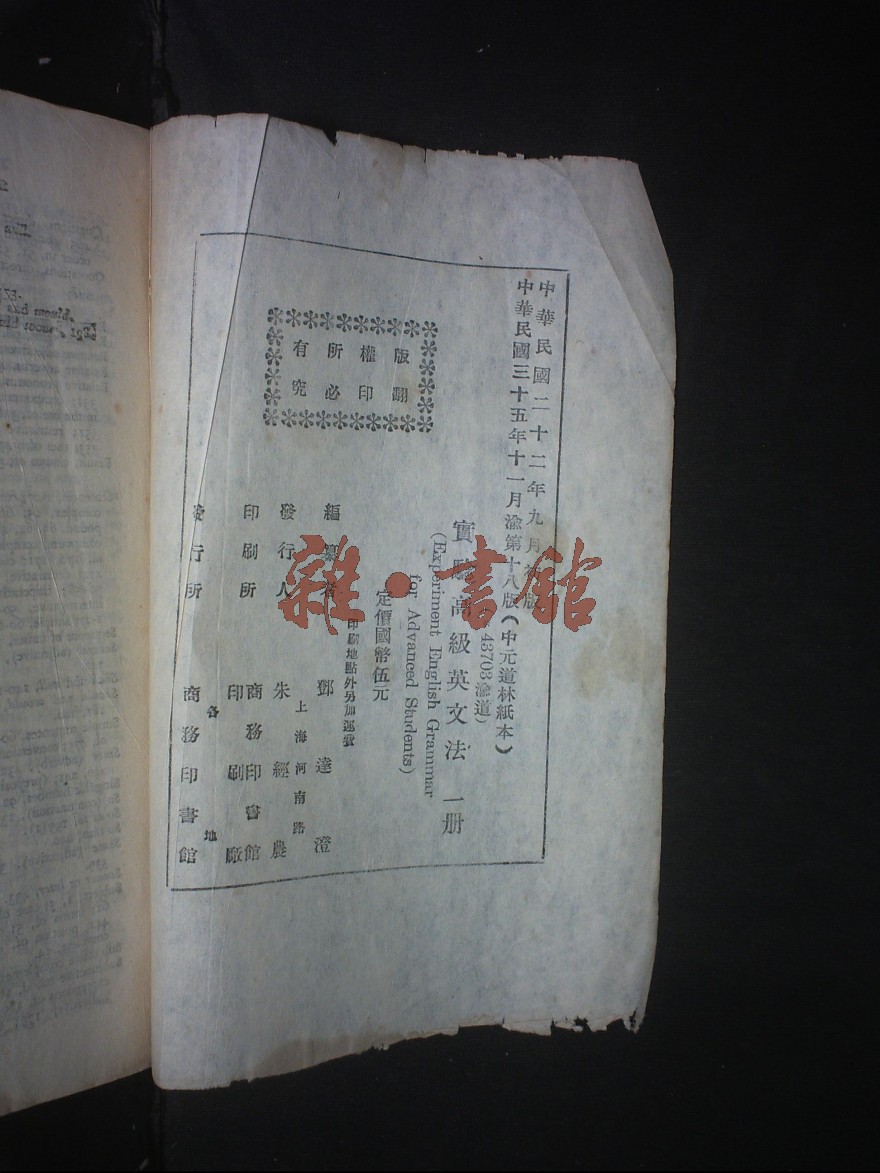 中華民國二十二年九月初版
中華民國三十五年十一月渝第十八版(中元道林紙本)
43703渝道)
實驗高級英文法 一册
(Experiment English Grammar
for Advanced Students)
定價國幣伍元
印刷地點外另加運費
編纂者 鄧達澄
上海河南路
發行人 朱經農
印刷所 商務印書館
印刷廠
各地
發行所 商務印書館
版權所有
翻印必究
雜·書館